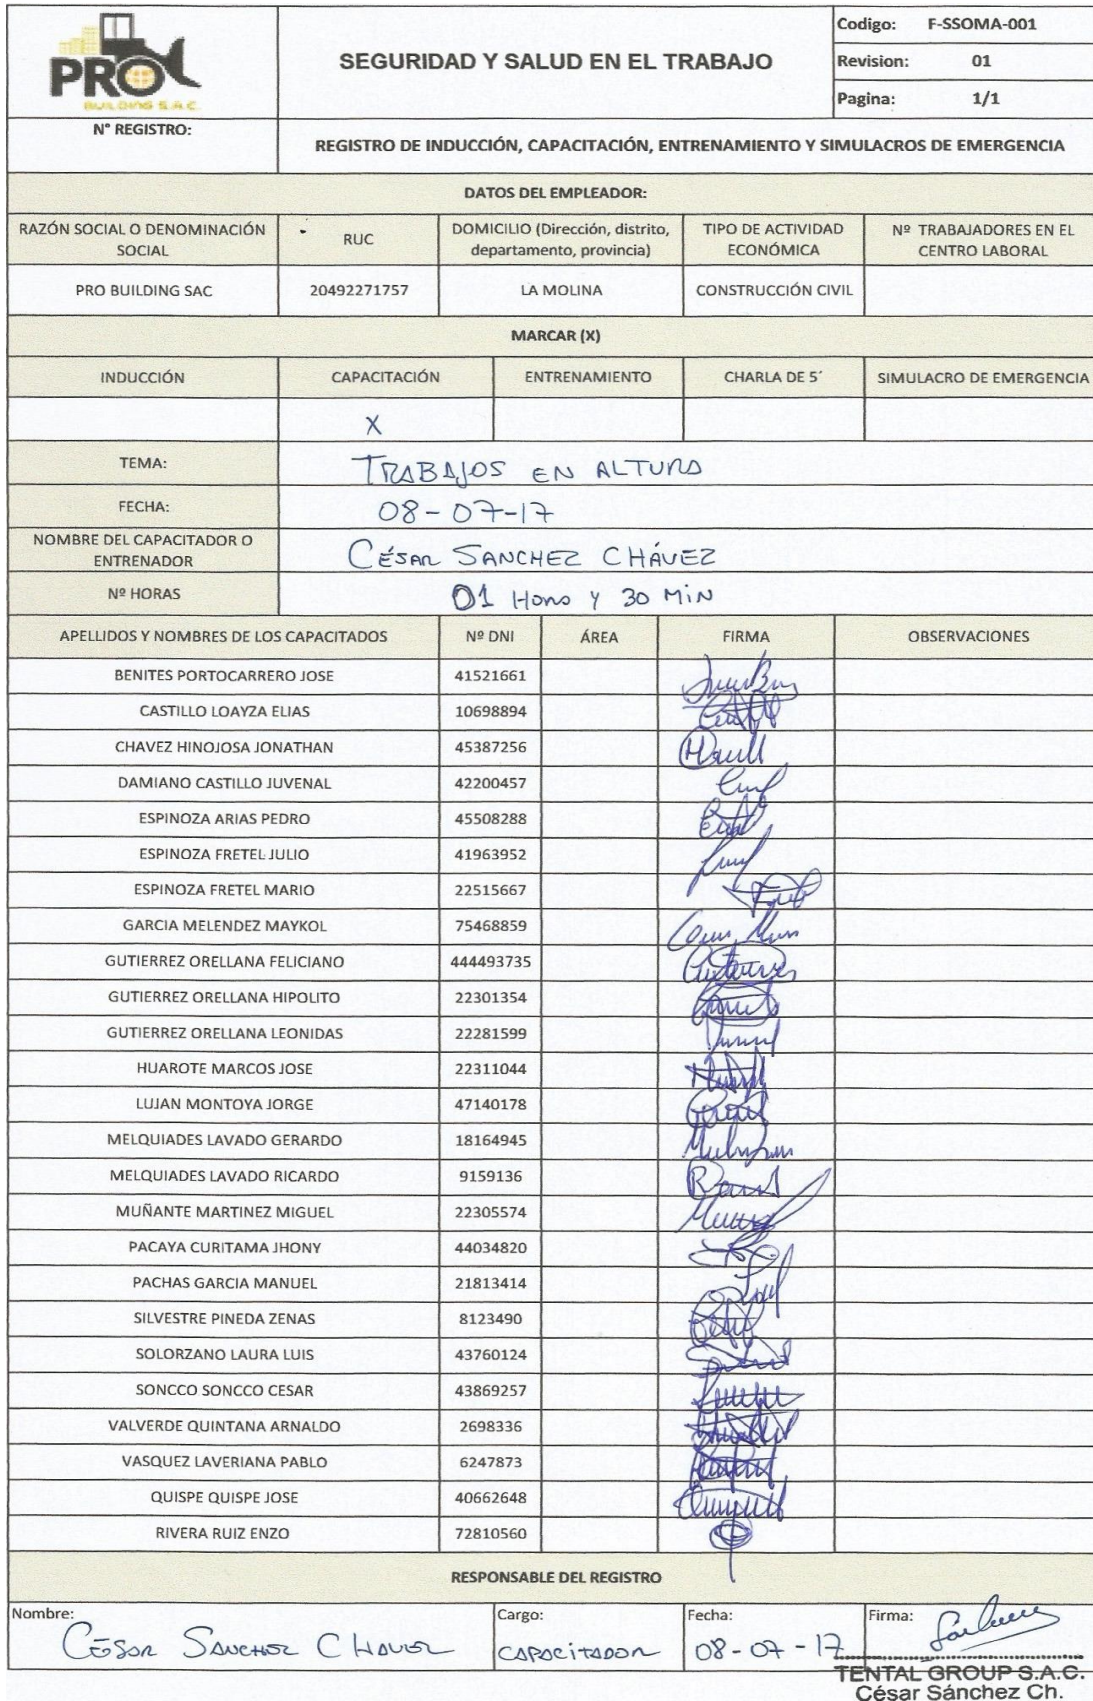 PRO
BUILDING S.A.C.
SEGURIDAD Y SALUD EN EL TRABAJO
Codigo: F-SSOMA-001
Revision: 01
Pagina: 1/1
N° REGISTRO:
REGISTRO DE INDUCCIÓN, CAPACITACIÓN, ENTRENAMIENTO Y SIMULACROS DE EMERGENCIA
DATOS DEL EMPLEADOR:
RAZÓN SOCIAL O DENOMINACIÓN SOCIAL RUC DOMICILIO (Dirección, distrito, departamento, provincia) TIPO DE ACTIVIDAD ECONÓMICA Nº TRABAJADORES EN EL CENTRO LABORAL
PRO BUILDING SAC 20492271757 LA MOLINA CONSTRUCCIÓN CIVIL
MARCAR (X)
INDUCCIÓN CAPACITACIÓN ENTRENAMIENTO CHARLA DE 5´ SIMULACRO DE EMERGENCIA
X
TEMA: TRABAJOS EN ALTURA
FECHA: 08-07-17
NOMBRE DEL CAPACITADOR O ENTRENADOR CÉSAR SANCHEZ CHÁVEZ
Nº HORAS 01 Hora y 30 MIN
APELLIDOS Y NOMBRES DE LOS CAPACITADOS Nº DNI ÁREA FIRMA OBSERVACIONES
BENITES PORTOCARRERO JOSE 41521661
CASTILLO LOAYZA ELIAS 10698894
CHAVEZ HINOJOSA JONATHAN 45387256
DAMIANO CASTILLO JUVENAL 42200457
ESPINOZA ARIAS PEDRO 45508288
ESPINOZA FRETEL JULIO 41963952
ESPINOZA FRETEL MARIO 22515667
GARCIA MELENDEZ MAYKOL 75468859
GUTIERREZ ORELLANA FELICIANO 444493735
GUTIERREZ ORELLANA HIPOLITO 22301354
GUTIERREZ ORELLANA LEONIDAS 22281599
HUAROTE MARCOS JOSE 22311044
LUJAN MONTOYA JORGE 47140178
MELQUIADES LAVADO GERARDO 18164945
MELQUIADES LAVADO RICARDO 9159136
MUÑANTE MARTINEZ MIGUEL 22305574
PACAYA CURITAMA JHONY 44034820
PACHAS GARCIA MANUEL 21813414
SILVESTRE PINEDA ZENAS 8123490
SOLORZANO LAURA LUIS 43760124
SONCCO SONCCO CESAR 43869257
VALVERDE QUINTANA ARNALDO 2698336
VASQUEZ LAVERIANA PABLO 6247873
QUISPE QUISPE JOSE 40662648
RIVERA RUIZ ENZO 72810560
RESPONSABLE DEL REGISTRO
Nombre: CÉSAR SANCHEZ CHAVEZ Cargo: CAPACITADOR Fecha: 08-07-17 Firma:
TENTAL GROUP S.A.C.
César Sánchez Ch.